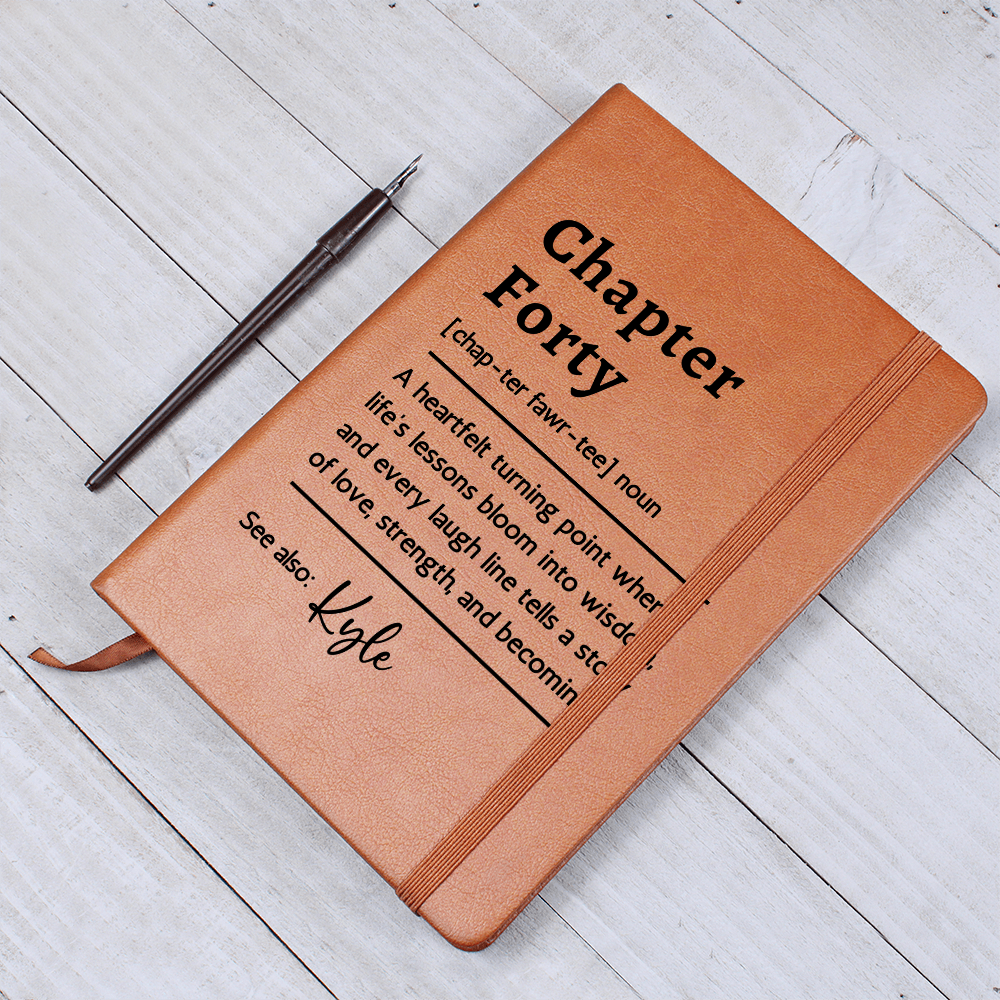 Chapter
Forty
[chap-ter fawr-tee] noun
A heartfelt turning point wher
life's lessons bloom into wisdo,
and every laugh line tells a story
of love, strength, and becomin
See also: Kyle